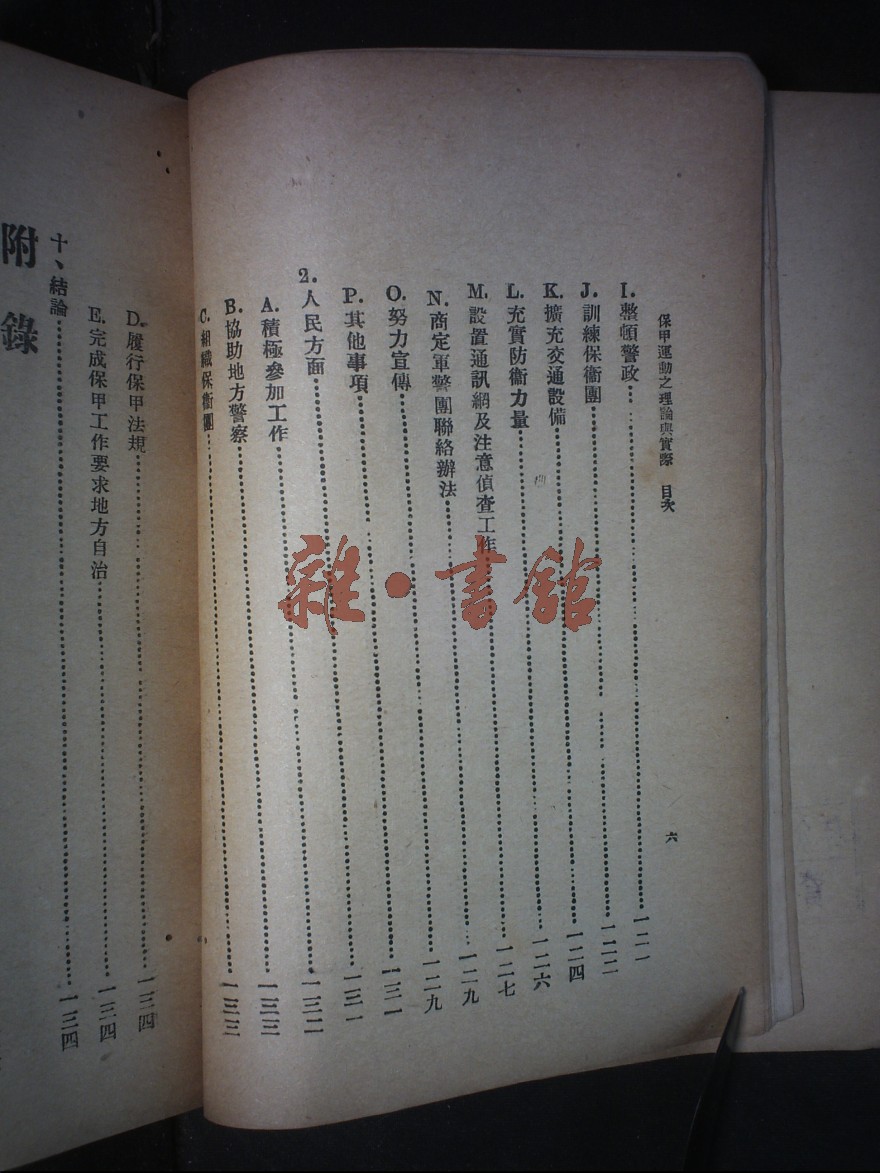 保甲運動之理論與實際 目次 六
I. 整頓警政……一二一
J. 訓練保衛團……一二二
K. 擴充交通設備……一二四
L. 充實防衛力量……一二六
M. 設置通訊網及注意偵查工作……一二七
N. 商定軍警團聯絡辦法……一二九
O. 努力宣傳……一二九
P. 其他事項……一三一
2. 人民方面……一三一
A. 積極參加工作……一三二
B. 協助地方警察……一三三
C. 組織保衛團……一三三
D. 履行保甲法規……一三四
E. 完成保甲工作要求地方自治……一三四
十、結論……一三四
附錄
雜·書館